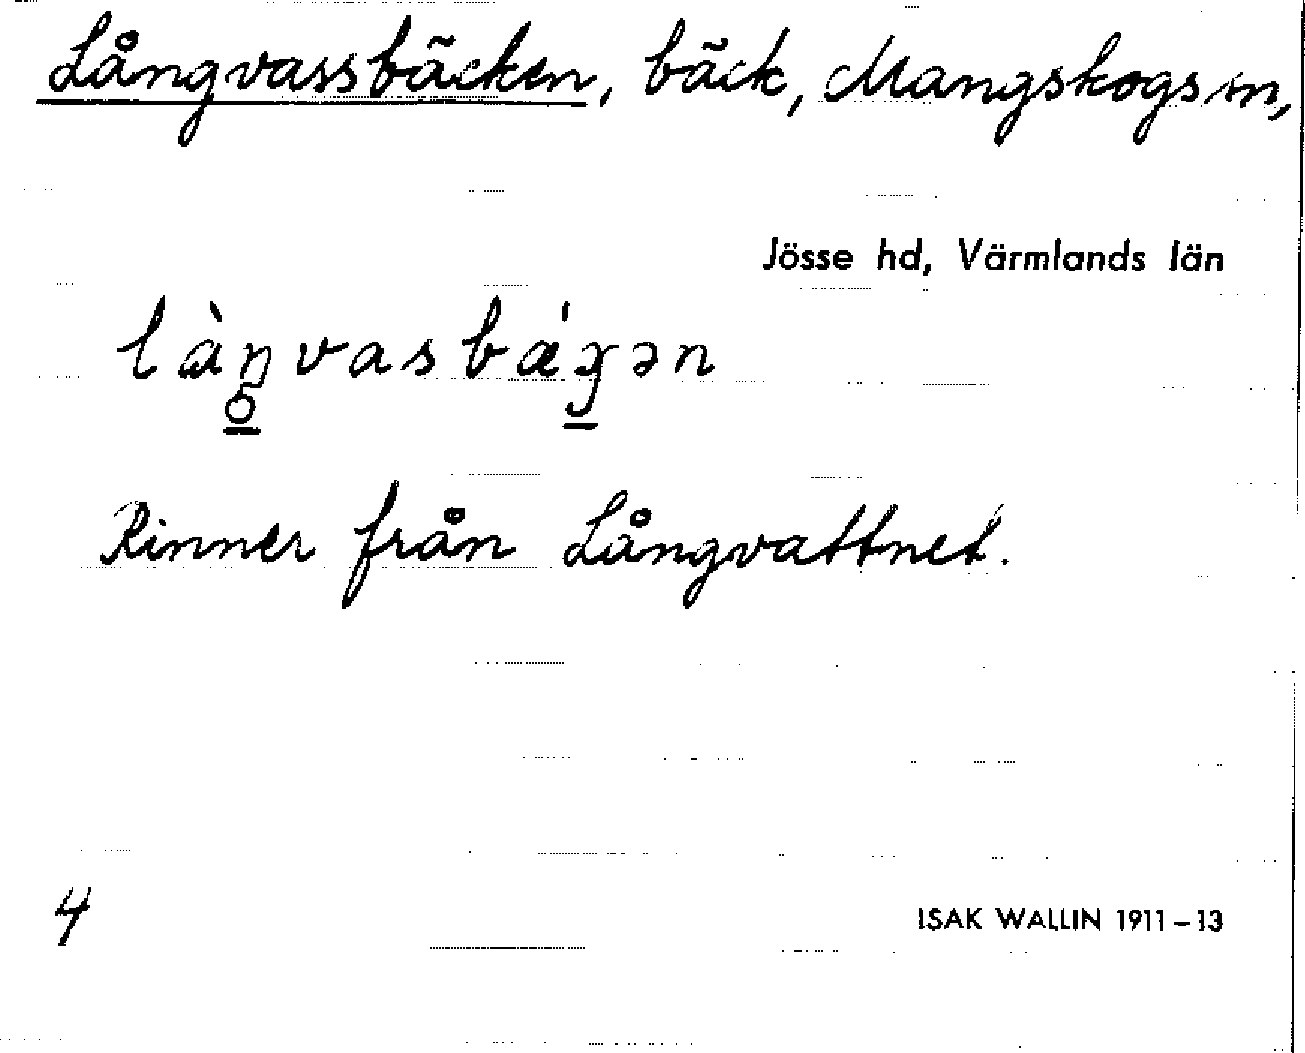 Långvassbäcken, bäck, Mangskogs sn,
Jösse hd, Värmlands län
Rinner från Långvattnet.
4
ISAK WALLIN 1911-13